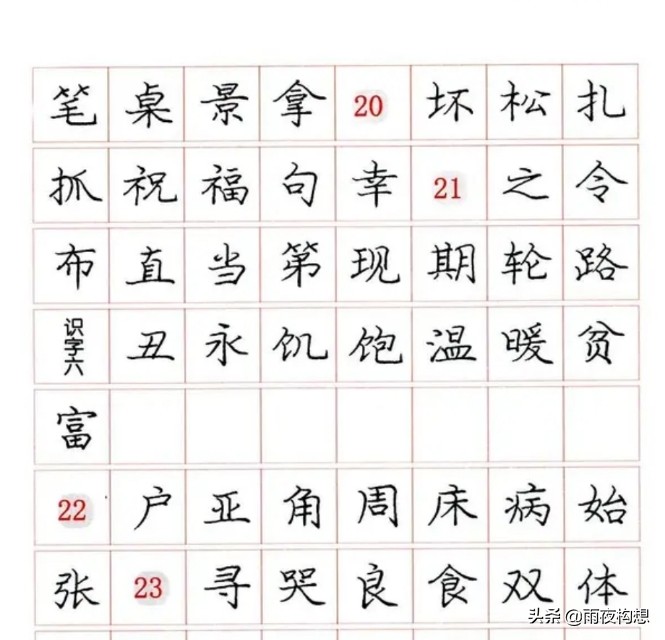 笔桌景拿20坏松扎
抓祝福句幸21之令
布直当第现期轮路
识字六丑永饥饱温暖贫
富
22户亚角周床病始
张23寻哭良食双体
头条 @雨夜构想